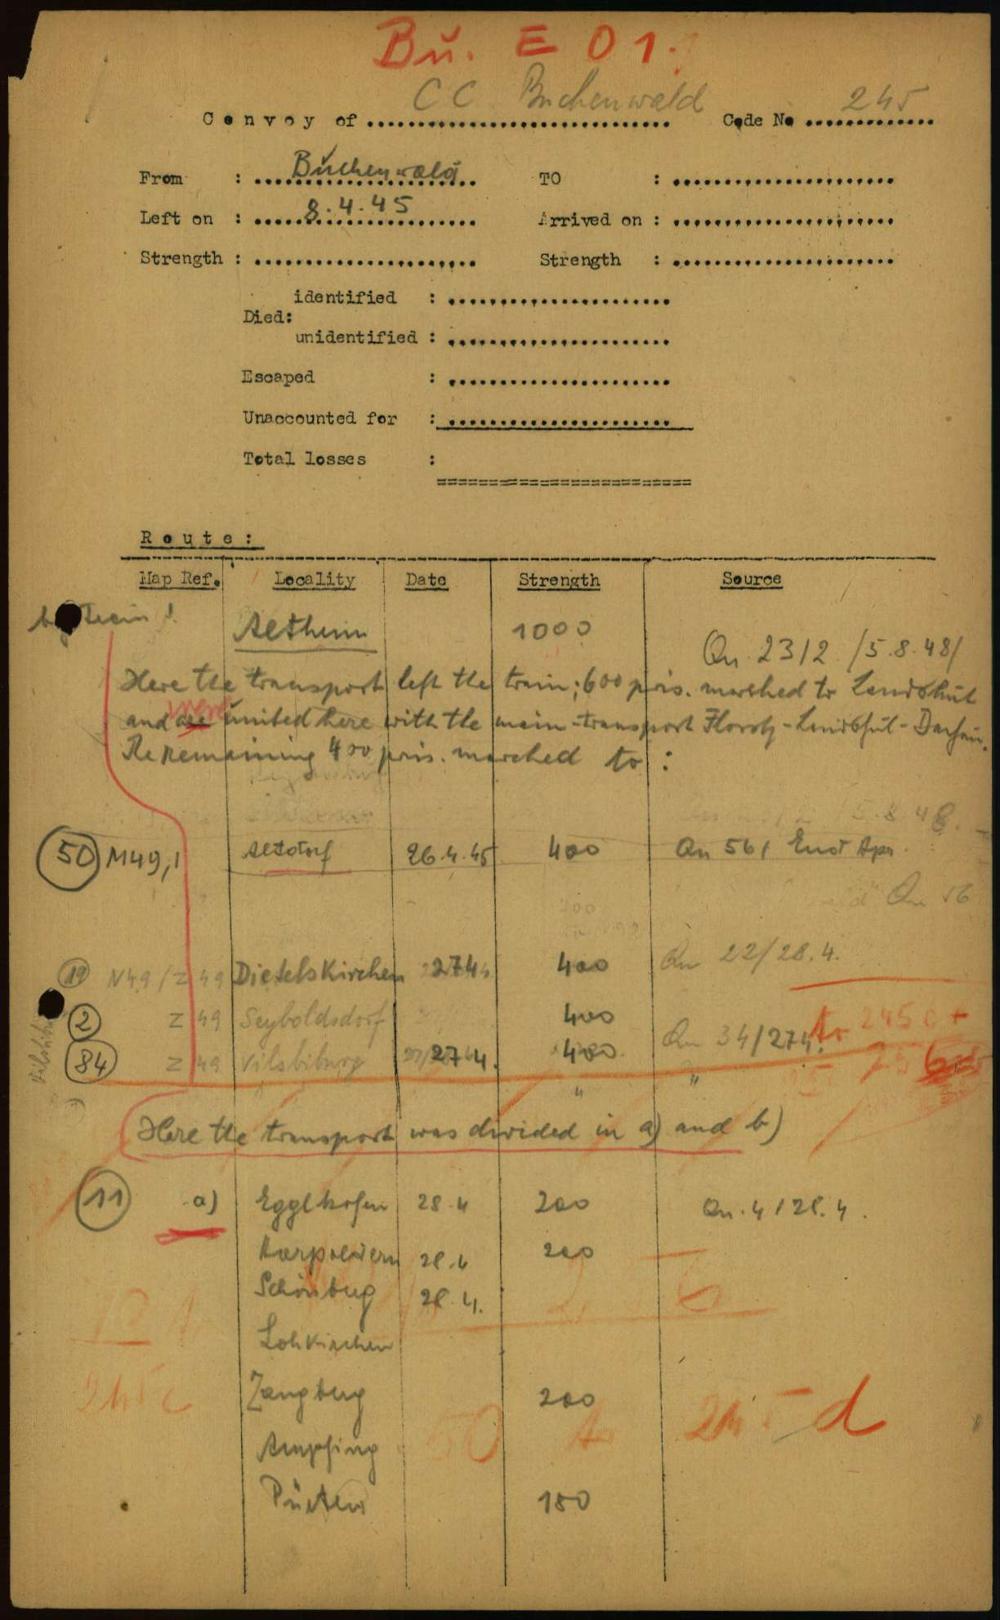 Bu. E 01.
Convoy of CC Buchenwald Code No 245
From : Buchenwald TO :
Left on : 8.4.45 Arrived on :
Strength : Strength :
identified :
Died:
unidentified :
Escaped :
Unaccounted for :
Total losses :
Route:
Map Ref. Locality Date Strength Source
Altheim 1000
Qu. 2312 /5.8.48/
Here the transport left the train; 600 pris. marched to Landshut
were
and are united here with the main-transport - Landshut - Dachau.
Re remaining 400 pris. marched to :
50 M49,1 Altdorf 26.4.45 400 Qu 561 End Apr.
Qu 56
19 N49/Z 49 Dietelskirchen 27.4. 400 Qu 22/28.4.
2 Z 49 Seyboldsdorf 400
84 Z 49 Vilsbiburg 27.4. 400 Qu 34/27.4. to 245 c +
" "
Here the transport was divided in a) and b)
11 a) Egglkofen 28.4 200 Qu. 4/28.4.
28.4 200
Schönberg 28.4.
Lohkirchen
245 c Zangberg 200
50 to 245 d
Ampfing
Pürten 150